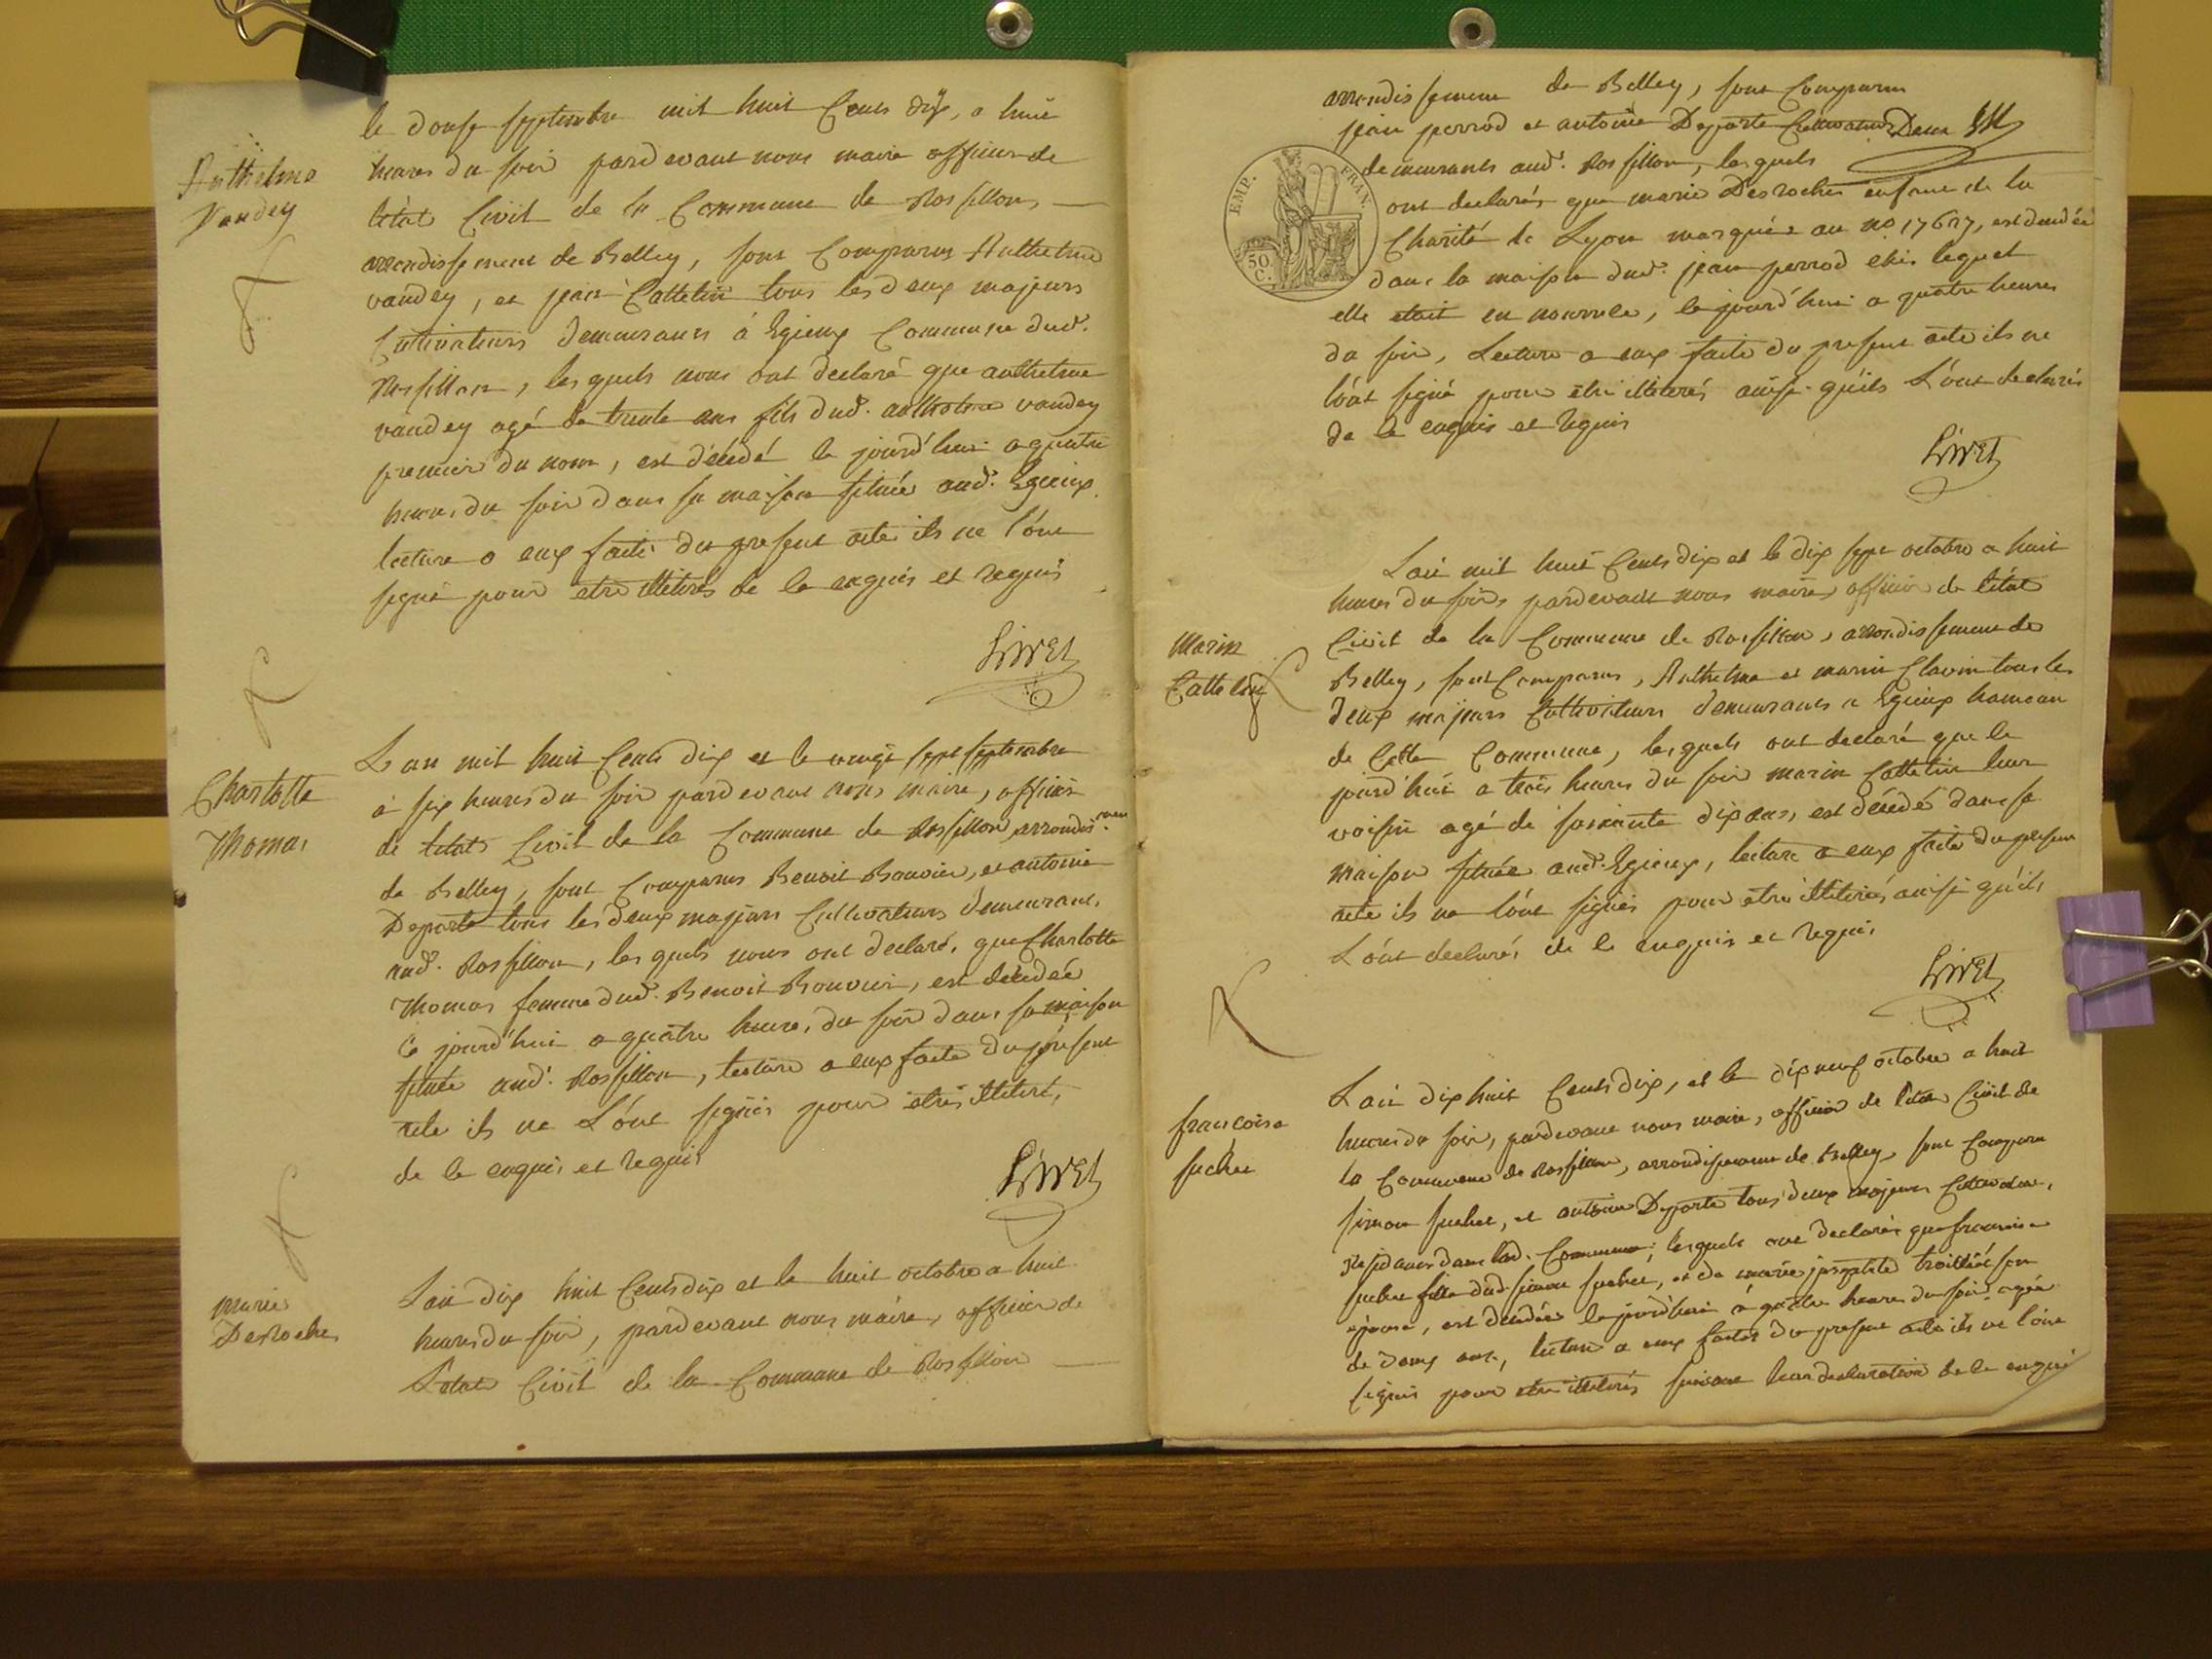 le douse septembre mil huit Cents dix, a huit
Anthelme
Vandey
heures du soir pardevant nous maire officier de
l'état Civil de la Commune de Rossillon,
arrondissement de Belley, sont Comparus Anthelme
vandey, et jean Cattelin tous les deux majeurs
Cultivateurs demeurants à Egieux Commune dud.
Rossillon, lesquels nous ont declaré que anthelme
vandey agé de trente ans fils dud. anthelme vandey
premier du nom, est décédé le jourd'hui a quatre
heures du soir dans sa maison située aud. Egieux
lecture a eux faite du present acte ils ne l'ónt
signé pour etre illiterés de le enquis et requis
Livet
L'an mil huit Cents dix et le vingt sept septembre
Charlotte
Thomas
à six heures du soir pardevant nous maire, officier
de l'état Civil de la Commune de Rossillon arrondis.ment
de Belley, sont Comparus Benoit Bouvier, et antoine
Deporte tous les deux majeurs Cultivateurs demeurants
aud. Rossillon, lesquels nous ont declaré, que Charlotte
Thomas femme dud. Benoit Bouvier, est décédée
ce jourd'hui a quatre heures du soir dans sa maison
située aud. Rossillon, lecture a eux faite du présent
acte ils ne L'ónt signés pour etre illiteré,
de le enquis et requis
Livet
L'an dix huit Cents dix et le huit octobre a huit
marie
Desroches
heures du soir, pardevant nous maire, officier de
L'etat Civil de la Commune de Rossillon
arrondissement de Belley, sont Comparus
jean perrod et antoine Deporte Cultivateurs Deux
demeurants aud. Rossillon, lesquels
EMP. FRAN.
50 C.
ont declarés que marie Desroches enfant de la
Charité de Lyon marquée au no 17627, est décédée
dans la maison dud. jean perrod chés lequel
elle était en nourrice, le jourd'hui a quatre heures
du soir, Lecture a eux faite du present acte ils ne
l'ónt signé pour etre illiterés ainsi qu'ils L'ónt declarés
de le enquis et requis
Livet
L'an mil huit Cents dix et le dix sept octobre a huit
heures du soir, pardevant nous maire, officier de l'état
Marin
Cattelin
Civil de la Commune de Rossillon, arrondissement de
Belley, sont Comparus, Anthelme et marin Clavin tous les
deux majeurs Cultivateurs demeurants a Egieux hameau
de Cette Commune, lesquels ont declaré que le
jourd'hui a trois heures du soir marin Cattelin leur
voisin agé de soixante dix ans, est décédé dans sa
maison située aud. Egieux, lecture a eux faite du present
acte ils ne l'ónt signés pour etre illiterés ainsi qu'ils
L'ónt declarés de le enquis et requis
Livet
L'an dix huit Cents dix, et le dix neuf octobre a huit
francoise
suchet
heures du soir, pardevant nous maire, officier de l'état Civil de
la Commune de Rossillon, arrondissement de Belley, sont Comparu
simon suchet, et antoine Deporte tous deux majeurs Cultivateurs
residants dans lad. Commune, lesquels ont declarés que francoise
suchet fille dud. simon suchet, et de marie son
epouse, est décédée le jourd'hui à quatre heures du soir agée
de deux ans, lecture a eux faite du present acte ils ne l'ónt
signés pour etre illiterés suivant leur declaration de le enquis